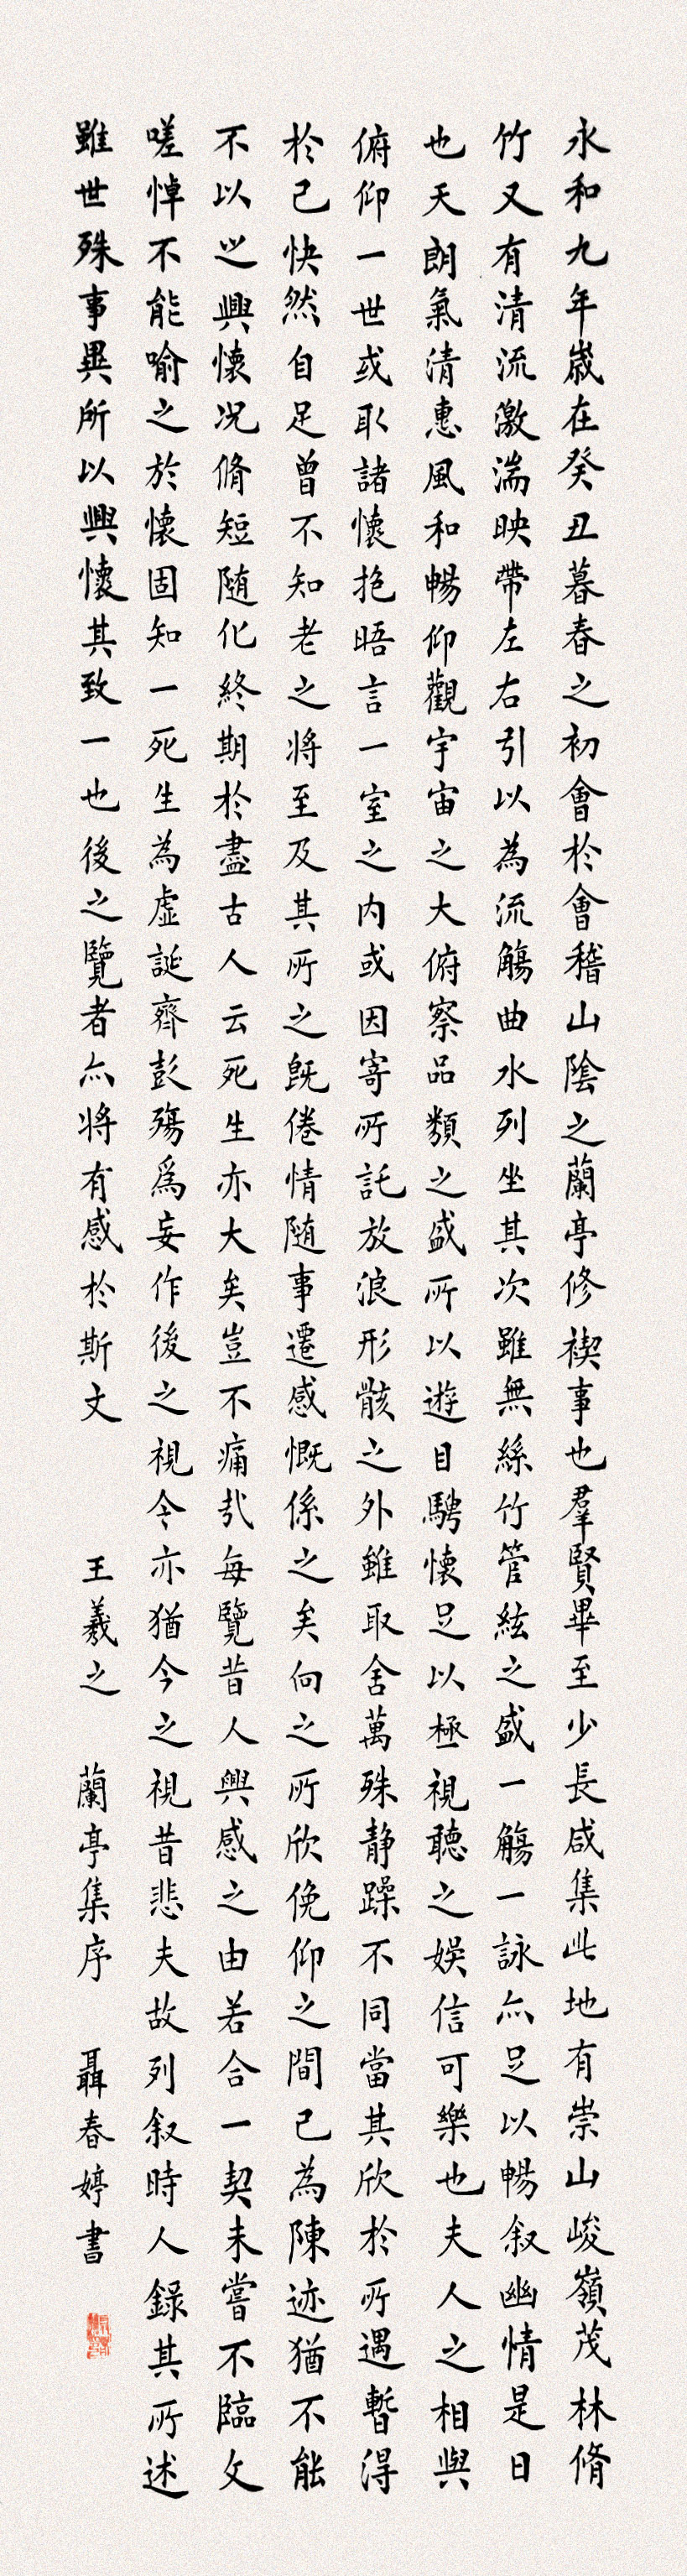 永和九年歲在癸丑暮春之初會於會稽山陰之蘭亭修禊事也羣賢畢至少長咸集此地有崇山峻嶺茂林脩
竹又有清流激湍映帶左右引以為流觴曲水列坐其次雖無絲竹管絃之盛一觴一詠亦足以暢叙幽情是日
也天朗氣清惠風和暢仰觀宇宙之大俯察品類之盛所以遊目騁懷足以極視聽之娛信可樂也夫人之相與
俯仰一世或取諸懷抱晤言一室之內或因寄所託放浪形骸之外雖取舍萬殊静躁不同當其欣於所遇暫得
於己快然自足曾不知老之將至及其所之既倦情随事遷感慨係之矣向之所欣俛仰之間已為陳迹猶不能
不以之興懷况脩短随化終期於盡古人云死生亦大矣豈不痛哉每覽昔人興感之由若合一契未嘗不臨文
嗟悼不能喻之於懷固知一死生為虛誕齊彭殤爲妄作後之視今亦猶今之視昔悲夫故列叙時人錄其所述
雖世殊事異所以興懷其致一也後之覽者亦将有感於斯文 王羲之 蘭亭集序 聶春婷書